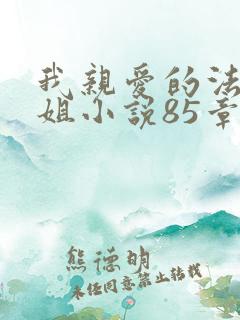 我亲爱的法
姐小说85章
熊德明
未经同意禁止转载